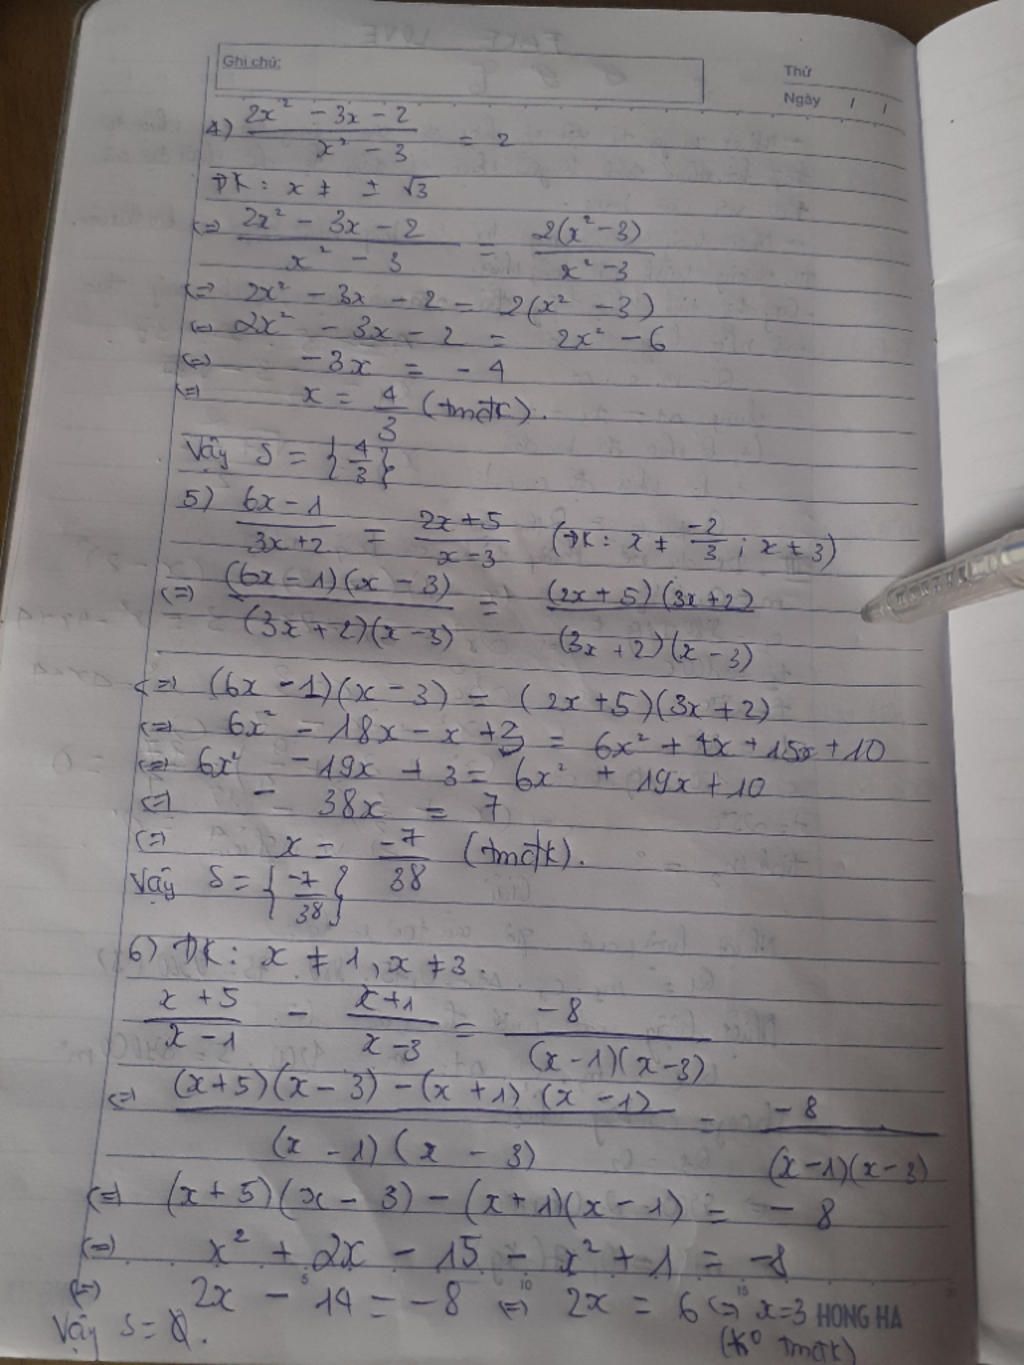 Ghi chú:
Thứ
Ngày / /
4) (2x² - 3x - 2)/(x² - 3) = 2
ĐK: x ≠ ± √3
<=> (2x² - 3x - 2)/(x² - 3) = 2(x² - 3)/(x² - 3)
<=> 2x² - 3x - 2 = 2(x² - 3)
<=> 2x² - 3x - 2 = 2x² - 6
<=> -3x = -4
<=> x = 4/3 (tmđk).
Vậy S = {4/3}
5) (6x - 1)/(3x + 2) = (2x + 5)/(x - 3) (ĐK: x ≠ -2/3; x ≠ 3)
<=> (6x - 1)(x - 3)/(3x + 2)(x - 3) = (2x + 5)(3x + 2)/(3x + 2)(x - 3)
<=> (6x - 1)(x - 3) = (2x + 5)(3x + 2)
<=> 6x² - 18x - x + 3 = 6x² + 4x + 15x + 10
<=> 6x² - 19x + 3 = 6x² + 19x + 10
<=> - 38x = 7
<=> x = -7/38 (tmđk).
Vậy S = {-7/38}
6) ĐK: x ≠ 1, x ≠ 3.
(x + 5)/(x - 1) - (x + 1)/(x - 3) = -8/(x - 1)(x - 3)
<=> (x + 5)(x - 3) - (x + 1)(x - 1)/(x - 1)(x - 3) = -8/(x - 1)(x - 3)
<=> (x + 5)(x - 3) - (x + 1)(x - 1) = - 8
<=> x² + 2x - 15 - x² + 1 = -8
<=> 2x - 14 = -8 <=> 2x = 6 <=> x = 3 HONG HA
Vậy S = ∅. (k° tmđk)